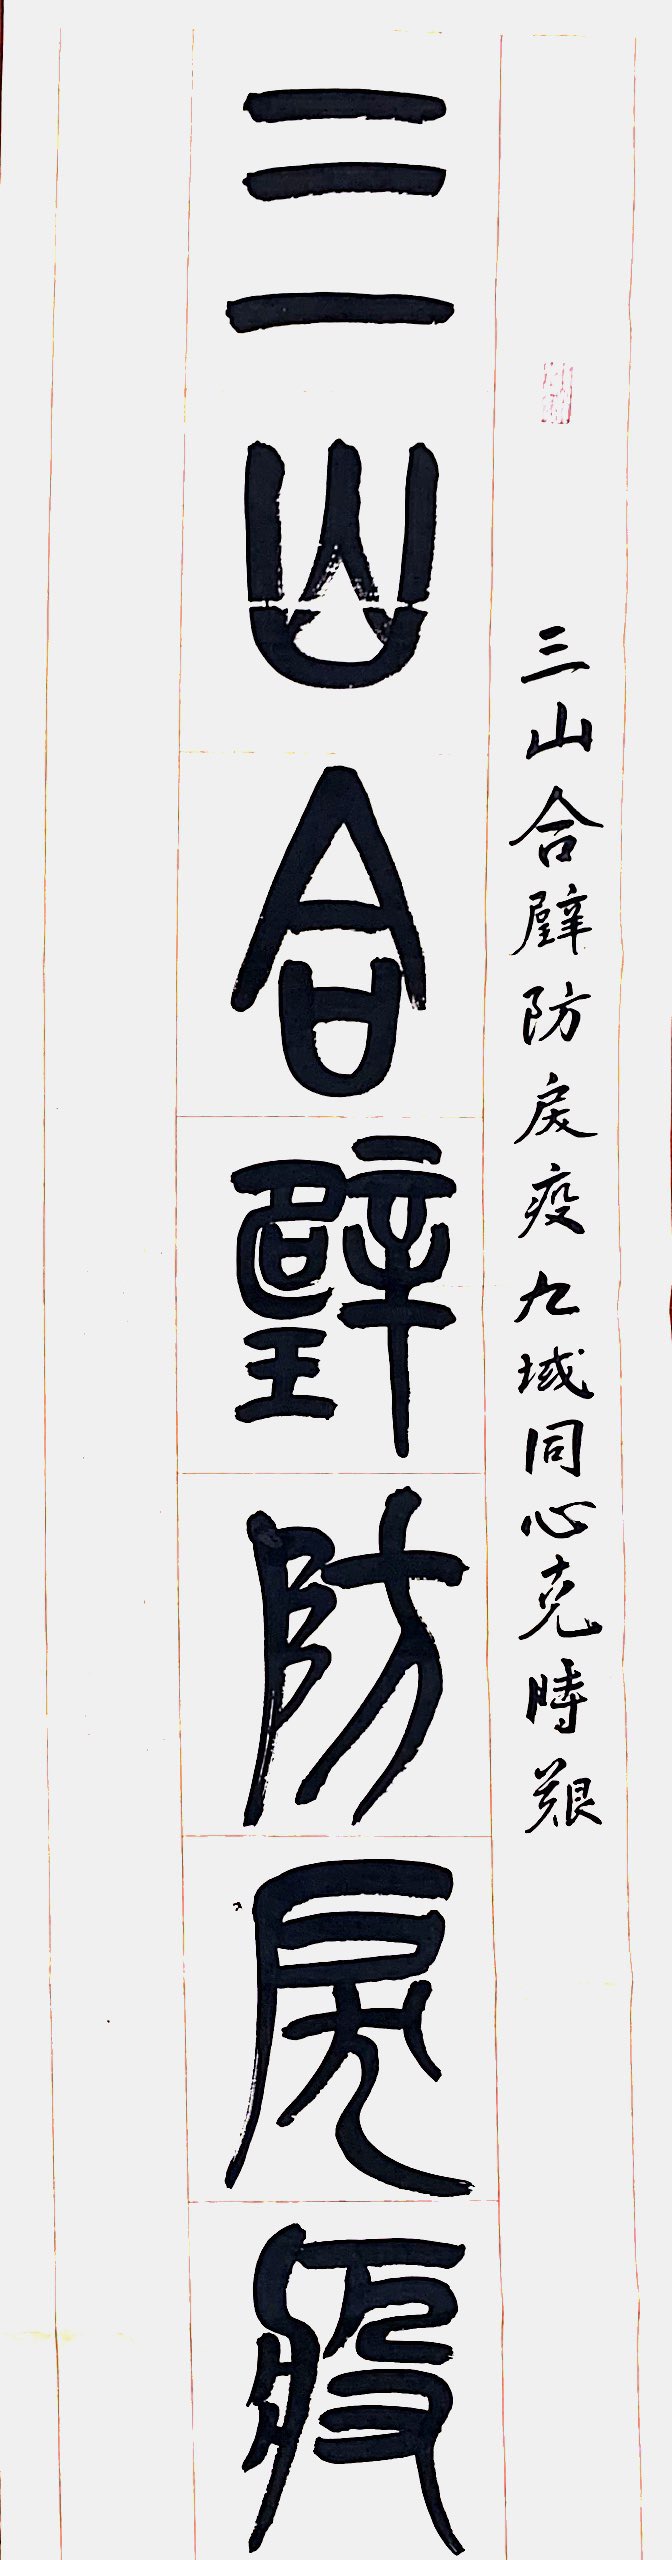 三山合璧防戾疫九域同心克時艱
三山合璧防戾疫